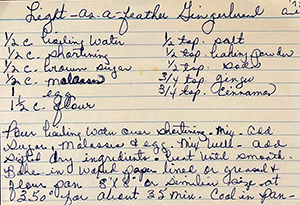 Light-as-a-feather Gingerbread
1/2 c. boiling water
1/2 c. shortening
1/2 c. brown sugar
1/2 c. molasses
1 egg
1 1/2 c. flour
1/2 tsp. salt
1/2 tsp. baking powder
1/2 tsp. soda
3/4 tsp. ginger
3/4 tsp. cinnamon
Pour boiling water over shortening. Mix. Add
sugar, molasses & egg. Mix well. Add
sifted dry ingredients. Beat until smooth.
Bake in waxed paper lined or greased &
flour pan 8"x8" or similar size at
350° for about 35 min. Cool in pan-